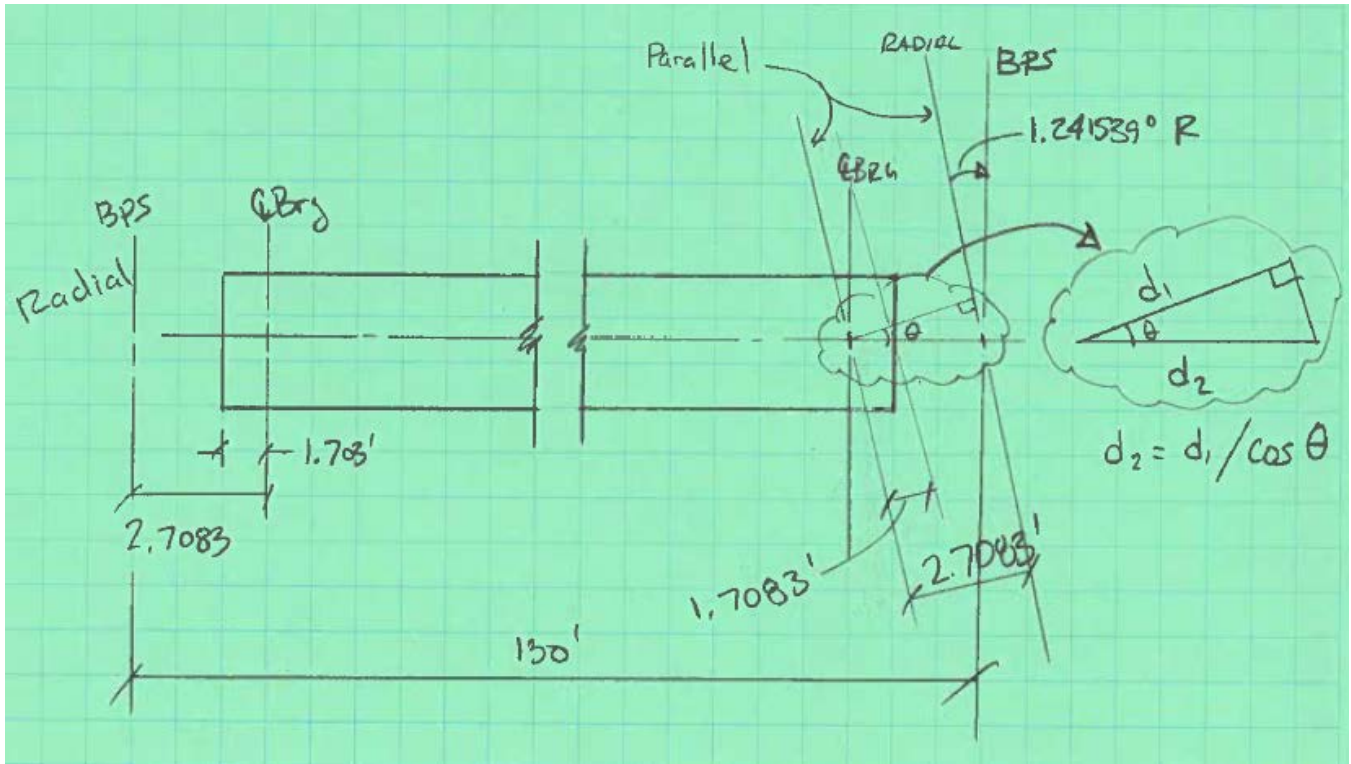 Parallel
RADIAL
BPS
1.241539° R
℄BRG
BPS
℄Brg
Radial
d₁
θ
d₂
θ
d₂ = d₁ / cos θ
1.708'
2.7083
1.7083'
2.7083'
130'